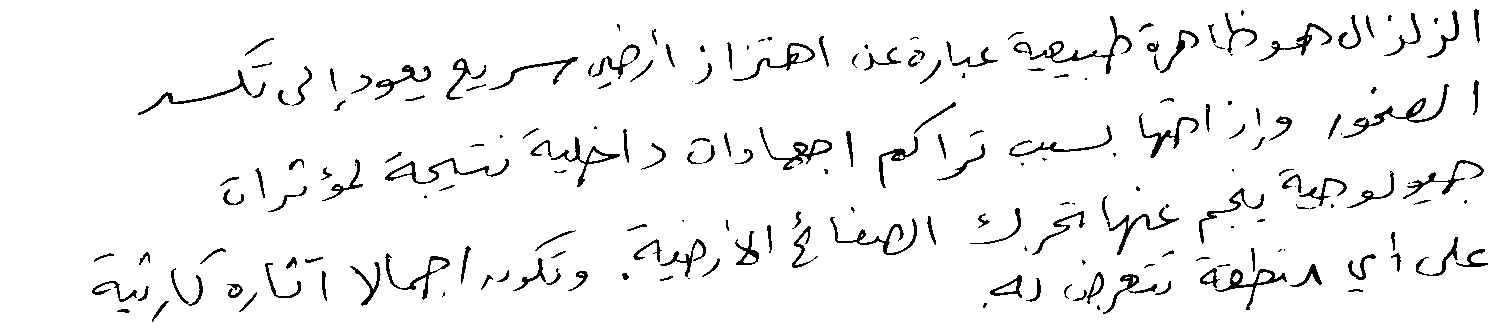 الزلزال هو ظاهرة طبيعية عبارة عن اهتزاز أرضي سريع يعود إلى تكسر
الصخور وإزاحتها بسبب تراكم اجهادات داخلية نتيجة لمؤثرات
جيولوجية ينجم عنها تحرك الصفائح الأرضية. وتكون اجمالا آثاره كارثية
على أي منطقة تتعرض له.